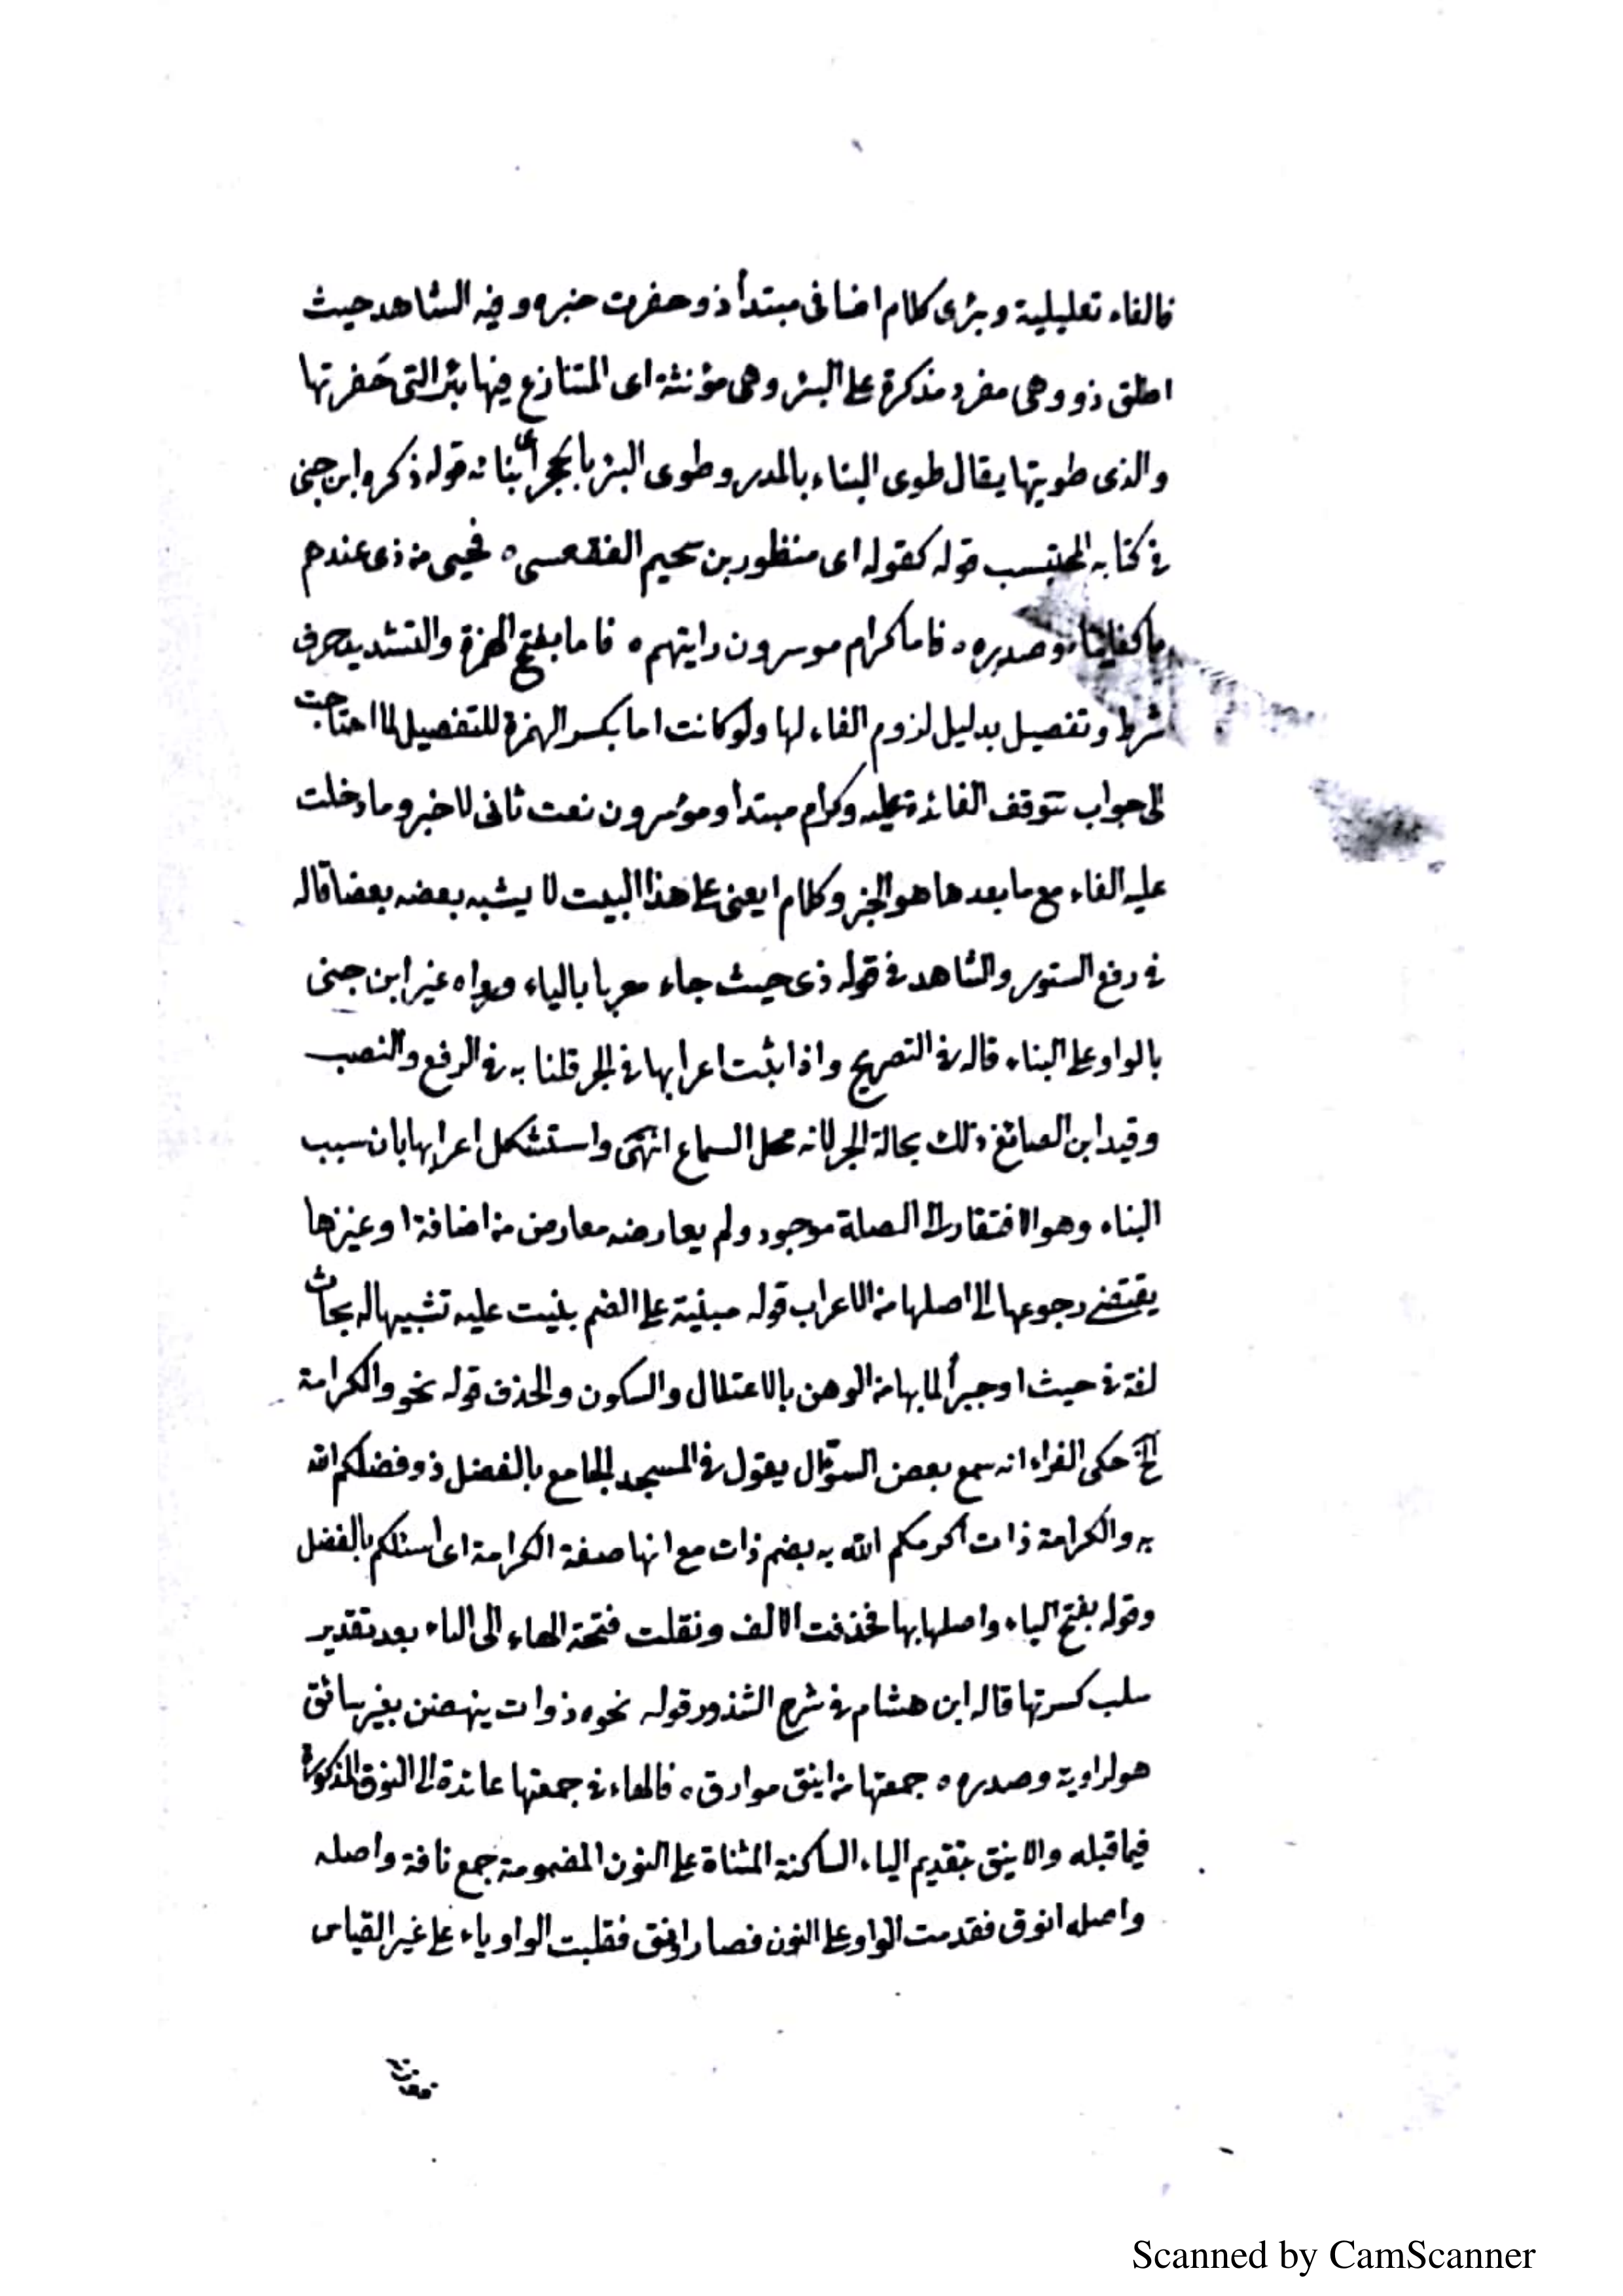 فالفاء تعليلية وبئرى كلام اضافى مبتدأ ذو حفرت خبره وفيه الشاهد حيث
اطلق ذو وهى مفرد مذكرة على البئر وهى مؤنثة اى المتنازع فيها بئر التى حَفرتها
والذى طويتها يقال طوى البناء بالمدر وطوى البئر بالحجر اى بناءه قوله ذكره ابن جنى
فى كتابه المحتسب قوله كقوله اى منظور بن سحيم الفقعسى ه فحيى من ذى عندهم
ما كفانيا وصدره ه فاما كرام موسرون رايتهم ه فاما بفتح الهمزة والتشديد حرف
شرط وتفصيل بدليل لزوم الفاء لها ولو كانت اما بكسر الهمزة للتفصيل لما احتاجت
الى جواب تتوقف الفائدة عليه وكرام مبتدأ وموسرون نعت ثانى لا خبر وما دخلت
عليه الفاء مع ما بعدها هو الخبر وكلام ايعنى على هذا البيت لا يشبه بعضه بعضا قاله
فى رفع الستور والشاهد فى قوله ذى حيث جاء معربا بالياء ورواه غير ابن جنى
بالواو على البناء قال فى التصريح واذا ثبت اعرابها فى الجر قلنا به فى الرفع والنصب
وقيد ابن الصائغ ذلك بحالة الجر لانه محل السماع انتهى واستشكل اعرابها بان سبب
البناء وهو الافتقار الى الصلة موجود ولم يعارضه معارض من اضافة او غيرها
يقتضى رجوعها الى اصلها من الاعراب قوله مبنية على الضم بنيت عليه تشبيها له بحاث
لغة فى حيث او جبرأ لما بها من الوهن بالاعتلال والسكون والحذف قوله نحو والكرامة
الخ حكى الفراء انه سمع بعض السؤّال يقول فى المسجد الجامع بالفضل ذو فضلكم الله
به والكرامة ذات اكرمكم الله به بضم ذات مع انها صفة الكرامة اى اسئلكم بالفضل
وقوله بفتح الباء واصلها بها فحذفت الالف ونقلت فتحة الهاء الى الباء بعد تقدير
سلب كسرتها قاله ابن هشام فى شرح الشذور قوله نحو ه ذوات ينهضن بغير سائق
هو لراوية وصدره ه جمعتها من اينق موارق ه فالهاء فى جمعتها عائدة الى النوق المذكورة
فيما قبله والاينق بتقديم الياء الساكنة المثناة على النون المضمومة جمع ناقة واصله
واصله انوق فقدمت الواو على النون فصار اونق فقلبت الواو ياء على غير القياس
Scanned by CamScanner